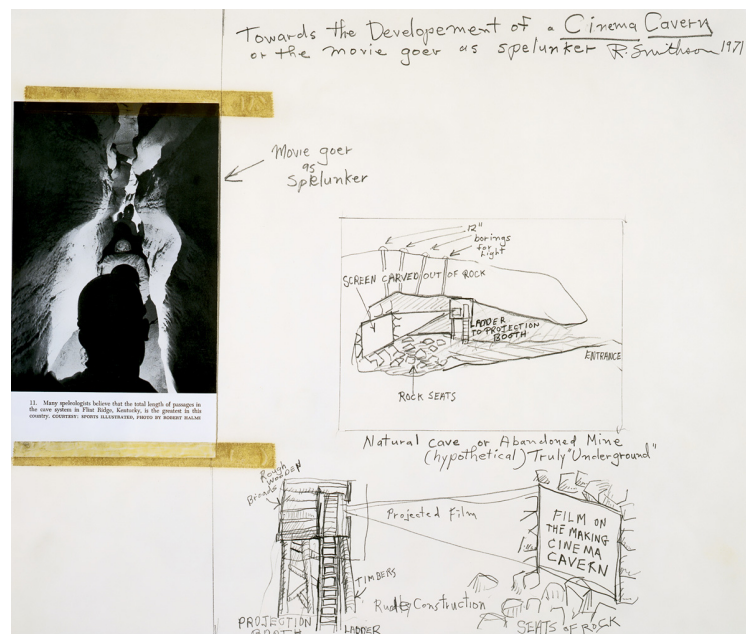 Towards the Developement of a Cinema Cavern
or the movie goer as spelunker R. Smithson 1971
Movie goer
as
Spelunker
11. Many speleologists believe that the total length of passages in
the cave system in Flint Ridge, Kentucky, is the greatest in this
country. COURTESY: SPORTS ILLUSTRATED, PHOTO BY ROBERT HALMI
12"
borings
for
Light
SCREEN CARVED OUT OF ROCK
LADDER
TO PROJECTION
BOOTH
ENTRANCE
ROCK SEATS
Natural cave or Abandoned Mine
(hypothetical) Truly "Underground"
Rough
Wooden
Projected Film
FILM ON
THE MAKING
CINEMA
CAVERN
TIMBERS
Rude Construction
PROJECTION
BOOTH
LADDER
SEATS OF ROCK